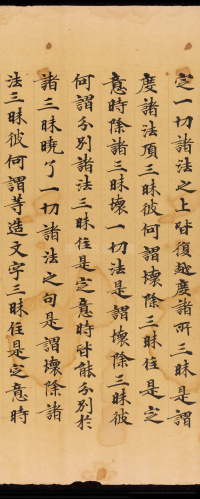 定一切諸法之上皆復越度諸所三昧是謂
度諸法頂三昧彼何謂壞除三昧住是定
意時除諸三昧壞一切法是謂壞除三昧彼
何謂分別諸法三昧住是定意時皆能分別於
諸三昧曉了一切諸法之句是謂壞除諸
法三昧彼何謂等造文字三昧住是定意時